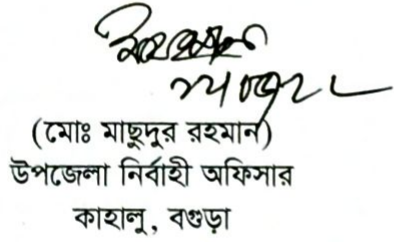 (মোঃ মাছুদুর রহমান)
উপজেলা নির্বাহী অফিসার
কাহালু, বগুড়া